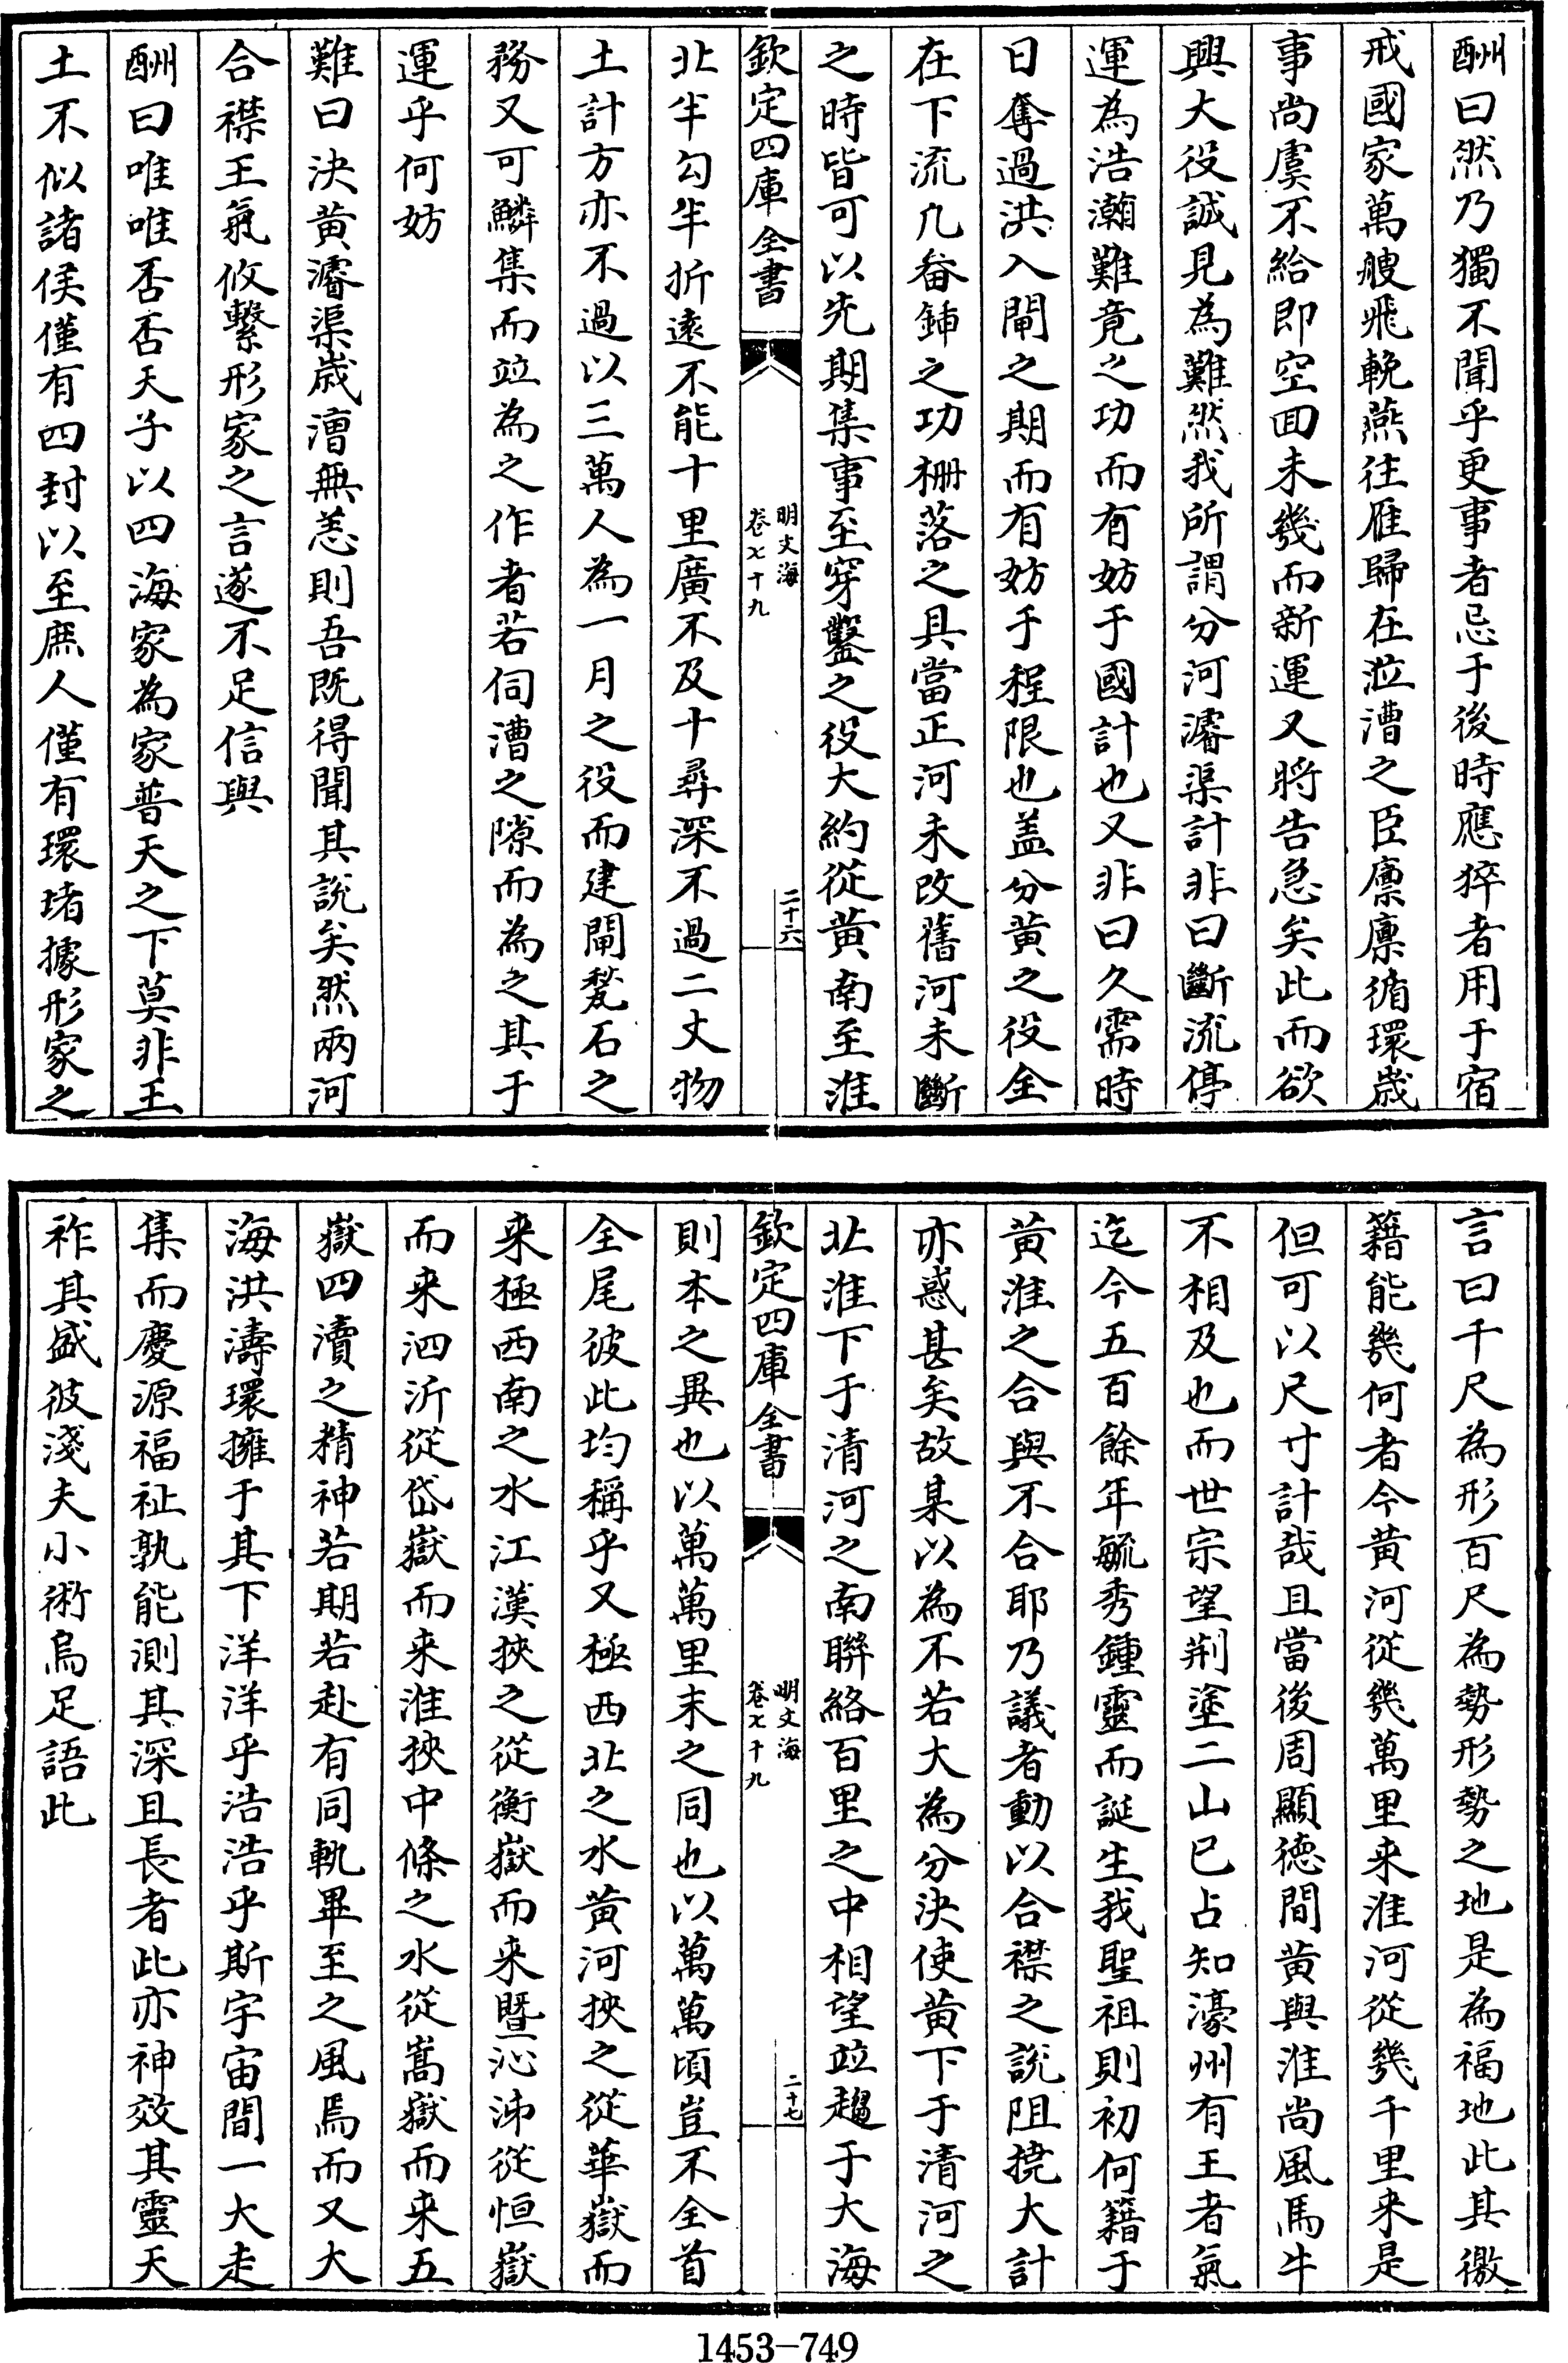 酬曰然乃獨不聞乎更事者忌于後時應猝者用于宿
戒國家萬艘飛輓燕往雁歸在涖漕之臣廪廪循環嵗
事尚虞不給即空回未幾而新運又將告急矣此而欲
興大役誠見為難然我所謂分河濬渠計非曰斷流停
運為浩瀚難竟之功而有妨于國計也又非曰久需時
日奪過洪入閘之期而有妨于程限也盖分黄之役全
在下流凡畚鍤之功柵落之具當正河未改舊河未斷
之時皆可以先期集事至穿鑿之役大約從黄南至淮
欽定四庫全書
明文海
卷七十九
二十六
北半勾半折逺不能十里廣不及十尋深不過二丈物
土計方亦不過以三萬人為一月之役而建閘甃石之
務又可鱗集而竝為之作者若伺漕之隙而為之其于
運乎何妨
難曰決黄濬渠嵗漕無恙則吾既得聞其說矣然兩河
合襟王氣攸繫形家之言遂不足信與
酬曰唯唯否否天子以四海家為家普天之下莫非王
土不似諸侯僅有四封以至庶人僅有環堵據形家之
言曰千尺為形百尺為勢形勢之地是為福地此其徼
籍能幾何者今黄河從幾萬里来淮河從幾千里来是
但可以尺寸計哉且當後周顯徳間黄與淮尚風馬牛
不相及也而世宗望荆塗二山已占知濠州有王者氣
迄今五百餘年毓秀鍾靈而誕生我聖祖則初何籍于
黄淮之合與不合耶乃議者動以合襟之說阻撓大計
亦惑甚矣故某以為不若大為分決使黄下于清河之
北淮下于清河之南聨絡百里之中相望竝趨于大海
欽定四庫全書
明文海
卷七十九
二十七
則本之異也以萬萬里末之同也以萬萬頃豈不全首
全尾彼此均稱乎又極西北之水黄河挾之從華嶽而
来極西南之水江漢挾之從衡嶽而来暨沁沛從恒嶽
而来泗沂從岱嶽而来淮挾中條之水從嵩嶽而来五
嶽四瀆之精神若期若赴有同軌畢至之風焉而又大
海洪濤環擁于其下洋洋乎浩浩乎斯宇宙間一大走
集而慶源福祉孰能測其深且長者此亦神效其靈天
祚其盛彼淺夫小術烏足語此
1453-749